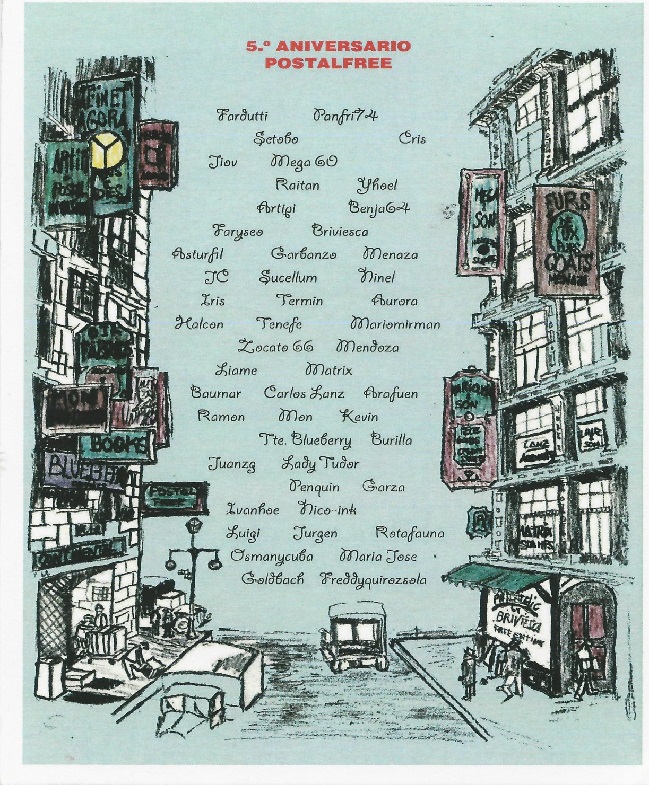 5.º ANIVERSARIO
POSTALFREE
Fardutti Panfri74
Setobo Cris
Jiov Mega 60
Raitan Yhoel
Artipi Benja64
Faryseo Briviesca
Asturfil Garbanzo Menaza
JC Sucellum Ninel
Iris Termin Aurora
Halcon Tenefe Mariomirman
Zocato 66 Mendoza
Liame Matrix
Baumar Carlos Lanz Arafuen
Ramon Mon Kevin
Tte. Blueberry Burilla
Juanzg Lady Tudor
Penquin Garza
Ivanhoe Nico-ink
Luigi Jurgen Rotafauno
Osmanycuba Maria Jose
Goldbach Freddyquirozsola
FINET
AGORA
FURS
COATS
BOOKS
BRIVIESCA